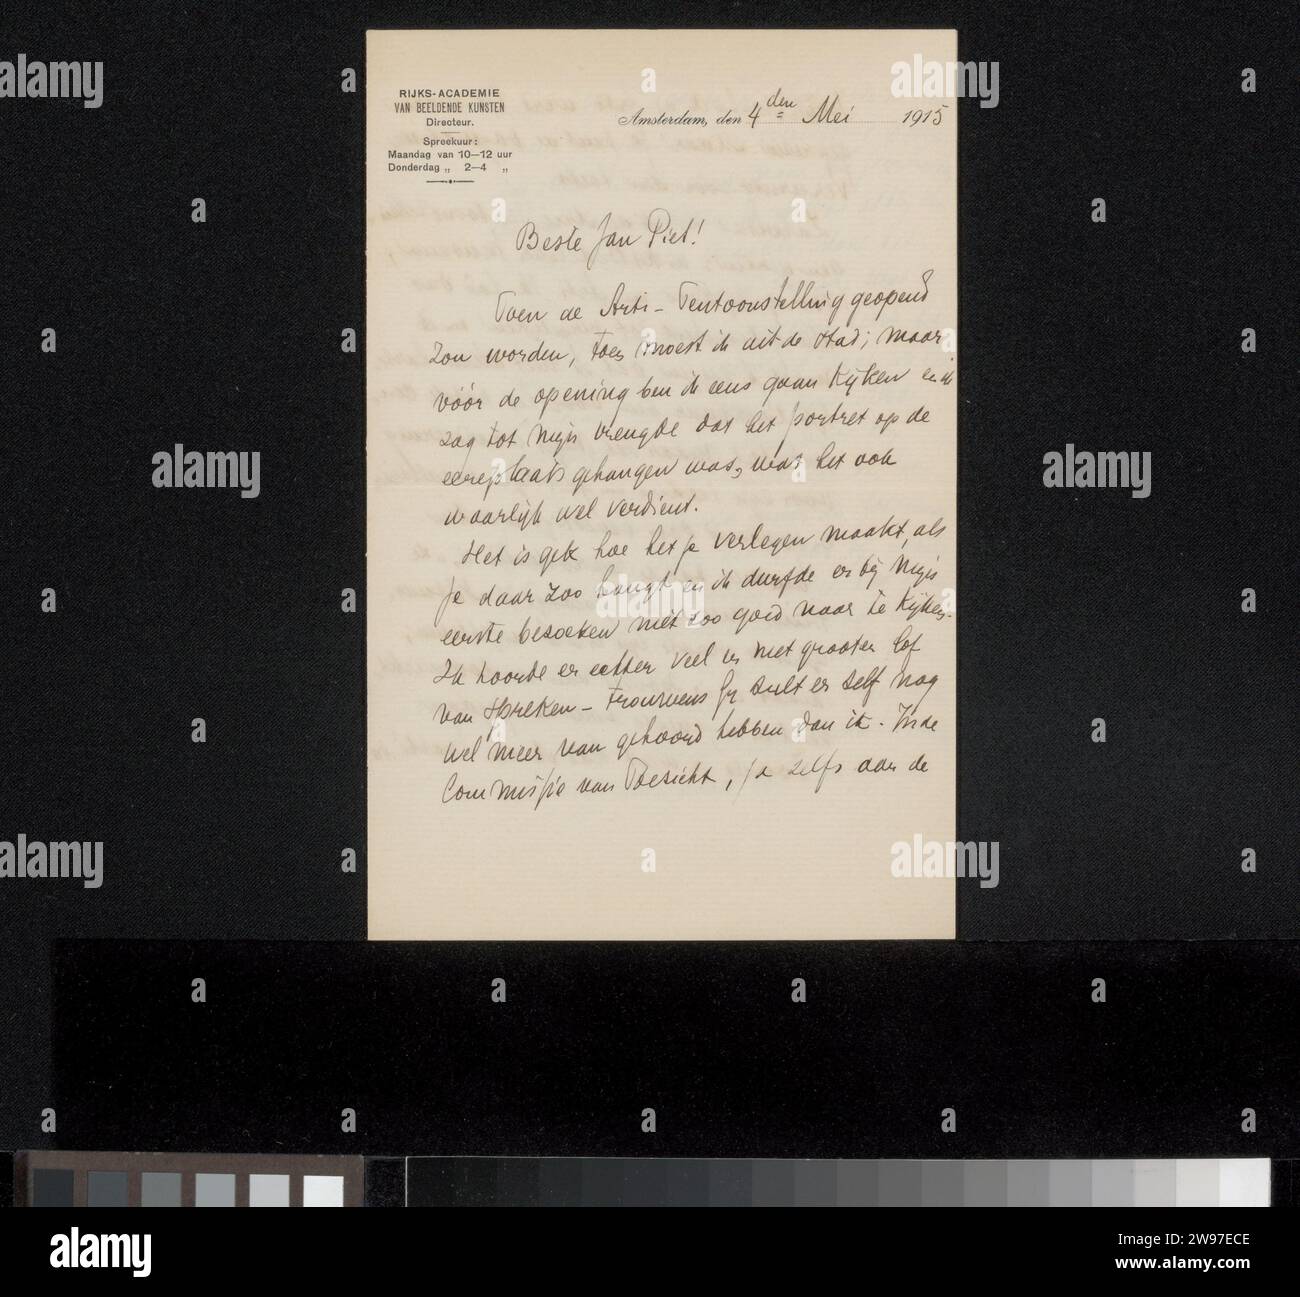 RIJKS-ACADEMIE
VAN BEELDENDE KUNSTEN
Directeur.
Spreekuur:
Maandag van 10—12 uur
Donderdag „ 2—4 „
Amsterdam, den 4den Mei 1915
Beste Jan Piet!
Toen de Arti-Tentoonstelling geopend
zou worden, toen moest ik uit de stad; maar
vóór de opening ben ik eens gaan kijken en ik
zag tot mijn vreugde dat het portret op de
eereplaats gehangen was, wat het ook
waarlijk wel verdient.
Het is gek hoe het je verlegen maakt, als
je daar zoo hangt en ik durfde er bij mijn
eerste bezoeken niet zoo goed naar te kijken.
Ik hoorde er echter veel en met grooten lof
van spreken - Trouwens gij zult er zelf nog
wel meer van gehoord hebben dan ik. In de
Commissie van Toezicht, ja zelfs aan de
alamy
Image ID: 2W97ECE
www.alamy.com